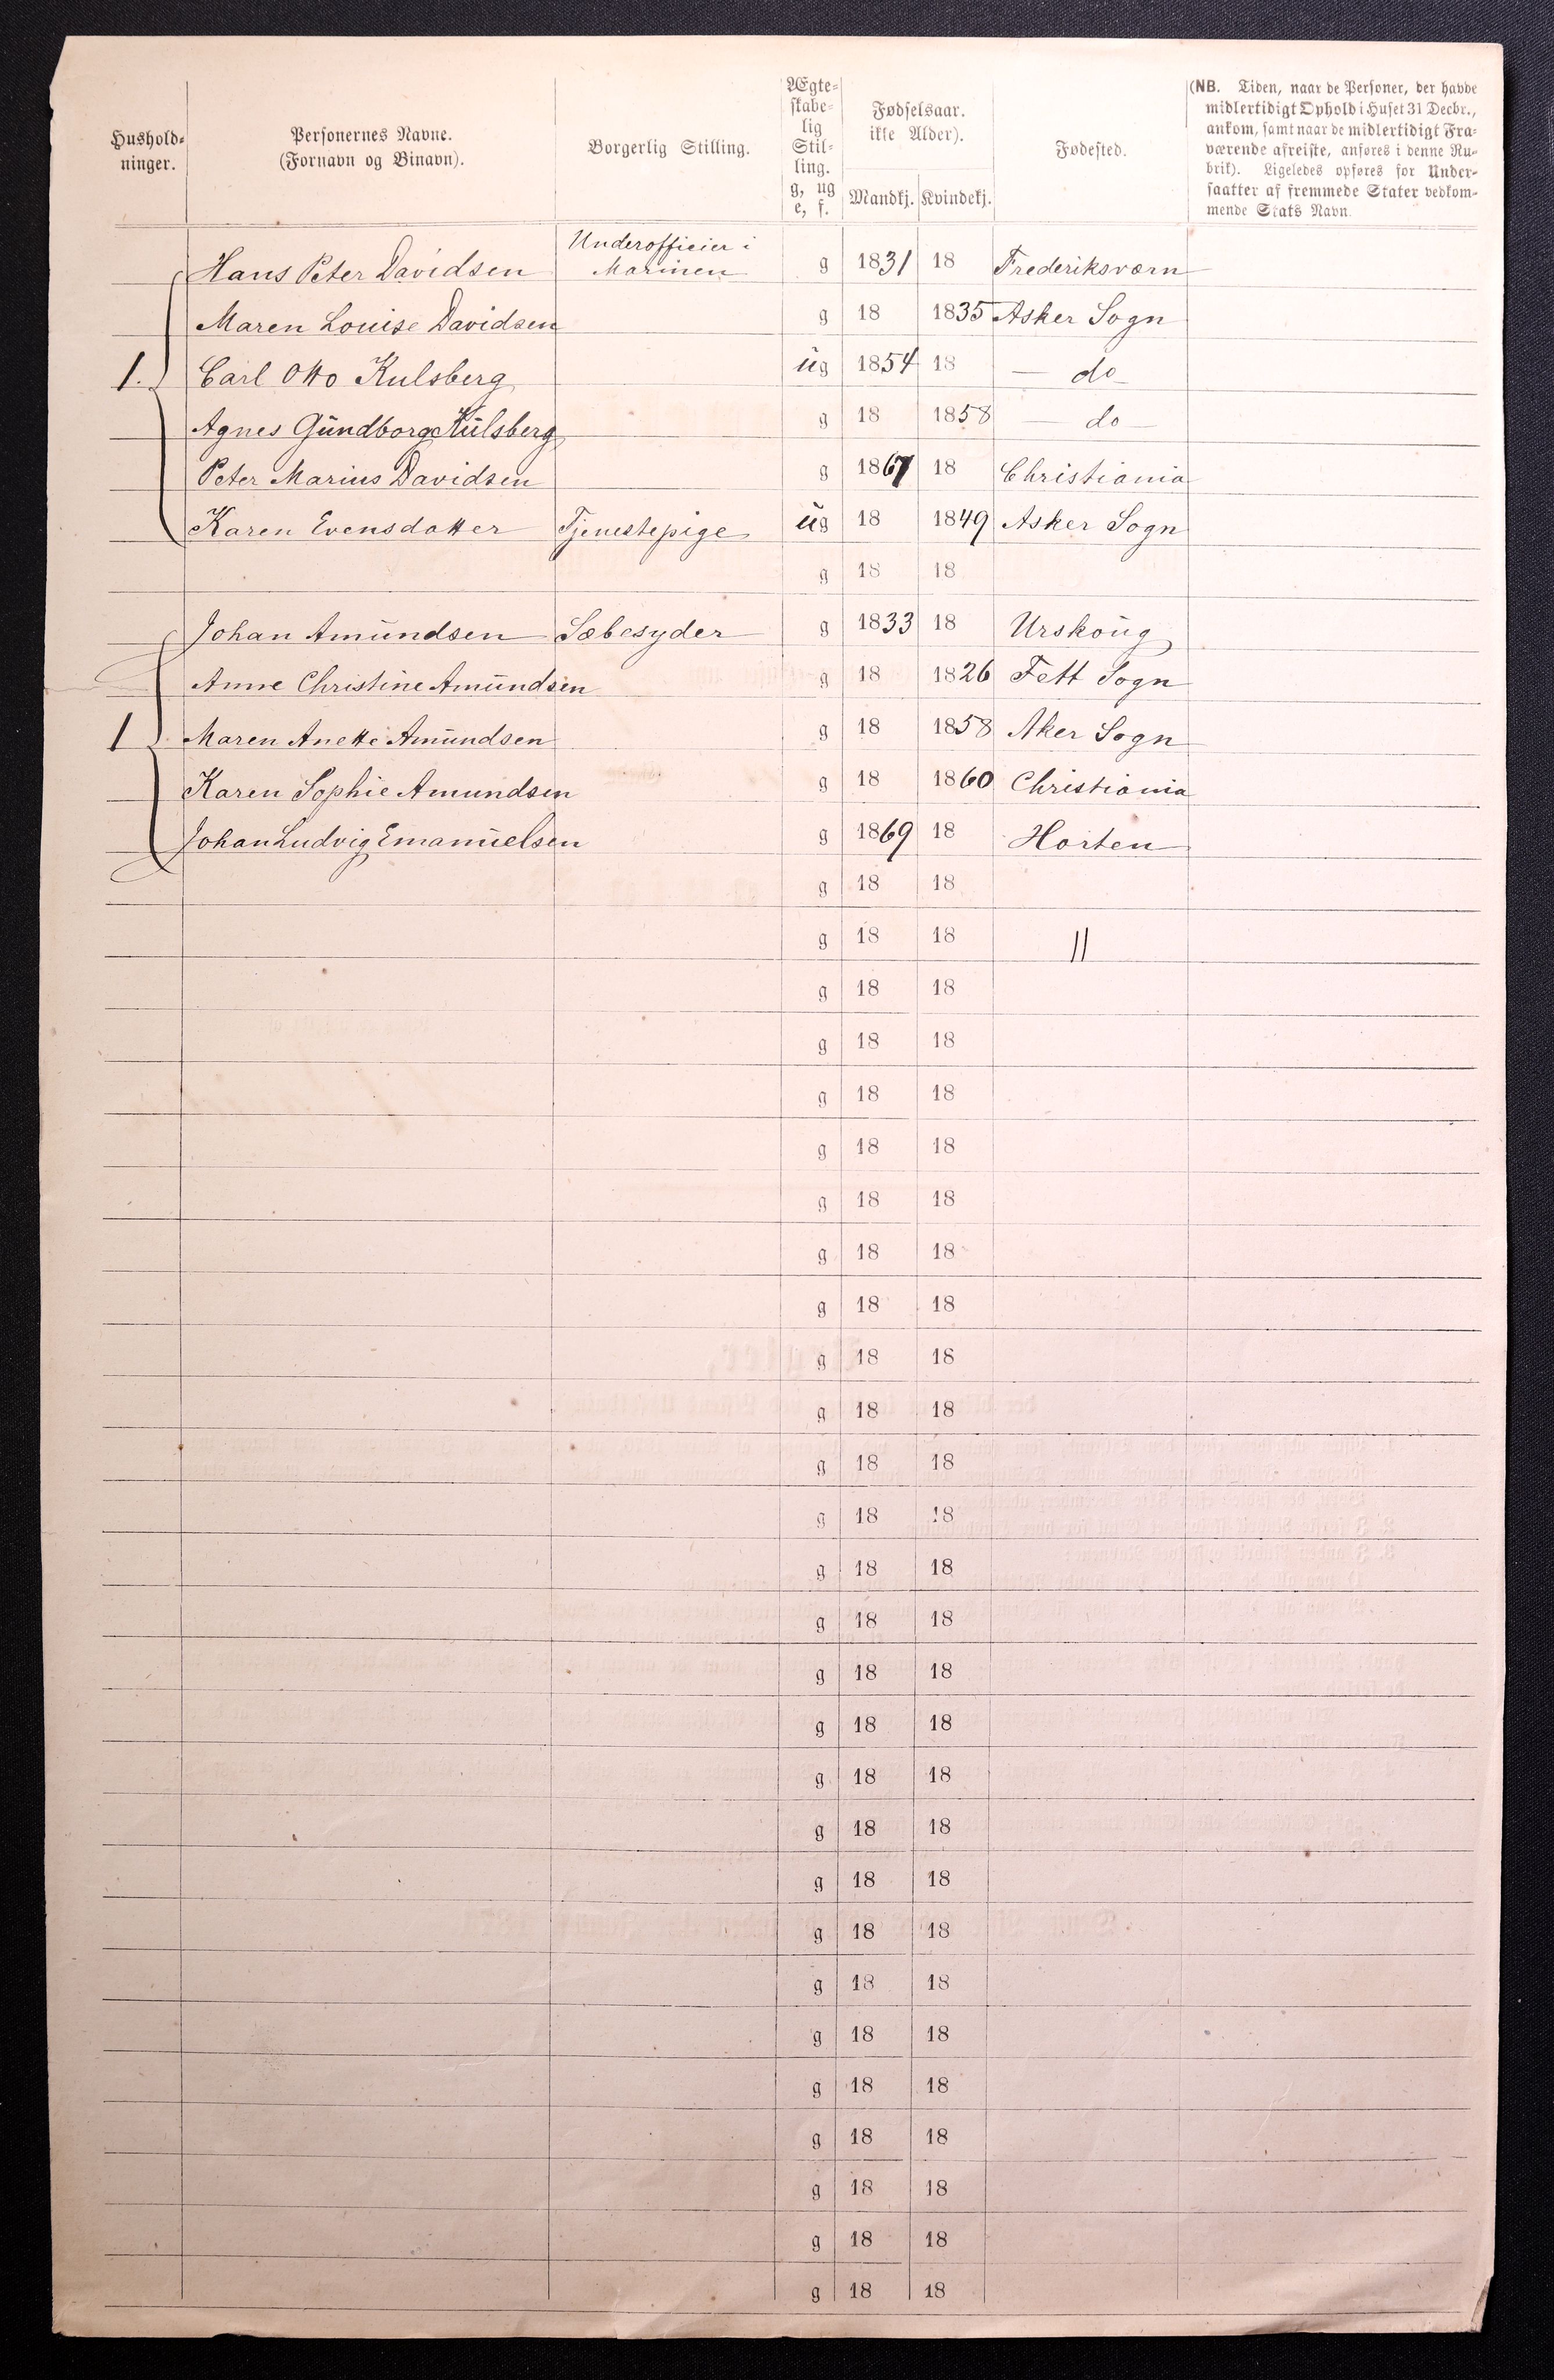 Hushold-
ninger.
Personernes Navne.
(Fornavn og Binavn).
Borgerlig Stilling.
Ægte-
skabe-
lig
Stil-
ling.
g, ug
e, f.
Fødselsaar.
ikke Alder).
Mandkj. Kvindekj.
Fødested.
(NB. Tiden, naar de Personer, der havde
midlertidigt Ophold i Huset 31 Decbr.,
ankom, samt naar de midlertidigt Fra-
værende afreiste, anføres i denne Ru-
brik). Ligeledes opføres for Under-
saatter af fremmede Stater vedkom-
mende Stats Navn.
Underofficier i
Hans Peter Davidsen Marinen g 1831 18 Frederiksværn
Maren Louise Davidsen g 18 1835 Asker Sogn
1. Carl Otto Kulsberg ug 1854 18 — do
Agnes Gundborg Kulsberg g 18 1858 — do —
Peter Marius Davidsen g 1867 18 Christiania
Karen Evensdatter Tjenestepige ug 18 1849 Asker Sogn
g 18 18
Johan Amundsen Sæbesyder g 1833 18 Urskoug
Anne Christine Amundsen g 18 1826 Fett Sogn
1 Maren Anette Amundsen g 18 1858 Aker Sogn
Karen Sophie Amundsen g 18 1860 Christiania
Johan Ludvig Emanuelsen g 1869 18 Horten
g 18 18
g 18 18 //
g 18 18
g 18 18
g 18 18
g 18 18
g 18 18
g 18 18
g 18 18
g 18 18
g 18 18
g 18 18
g 18 18
g 18 18
g 18 18
g 18 18
g 18 18
g 18 18
g 18 18
g 18 18
g 18 18
g 18 18
g 18 18
g 18 18
g 18 18
g 18 18
g 18 18
g 18 18